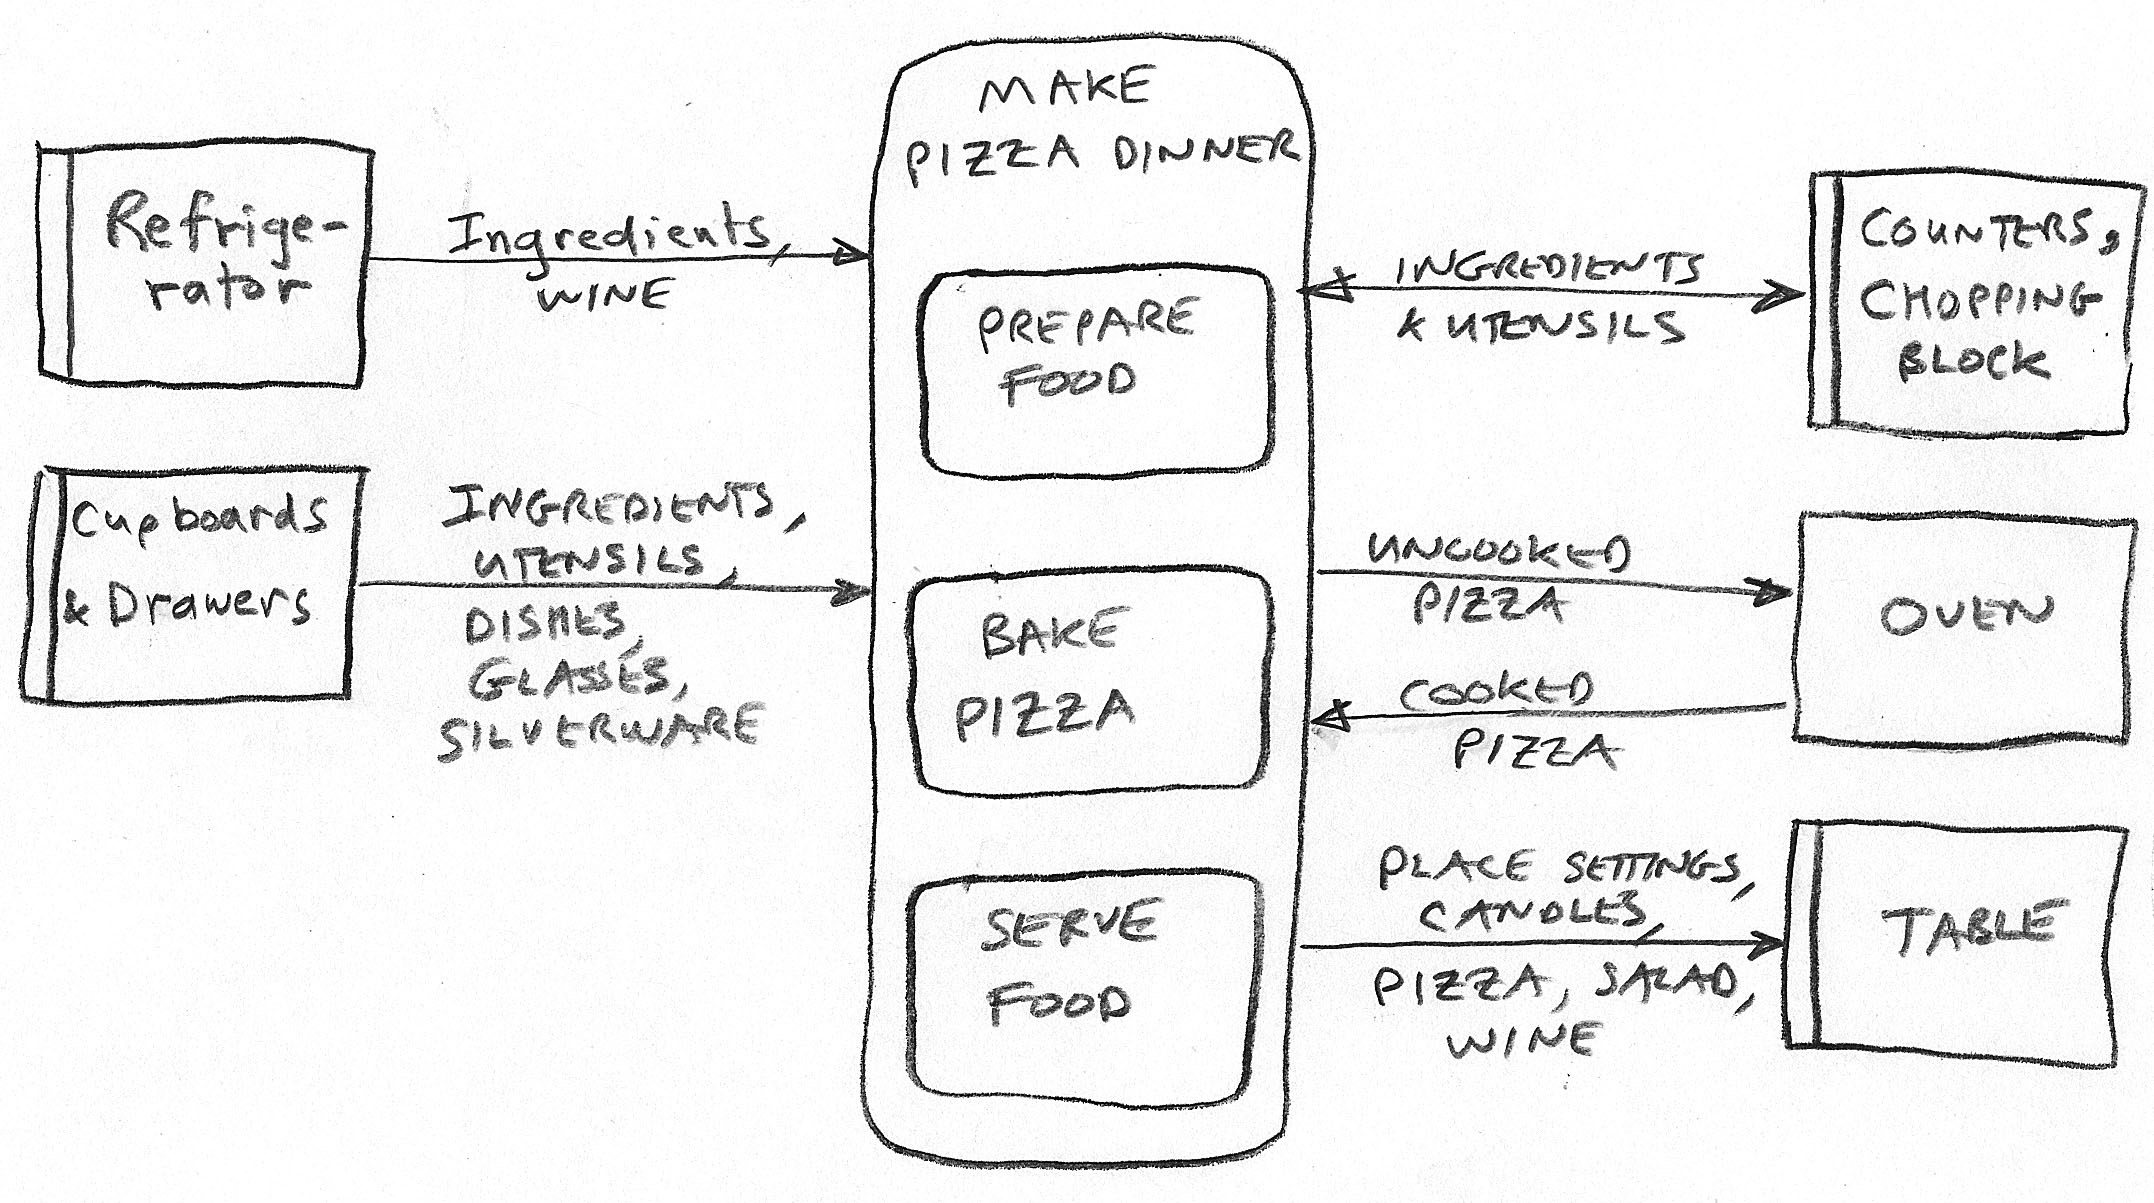 MAKE
PIZZA DINNER
Refrige-
rator
Ingredients,
WINE
PREPARE
FOOD
INGREDIENTS
& UTENSILS
COUNTERS,
CHOPPING
BLOCK
Cupboards
& Drawers
INGREDIENTS,
UTENSILS,
DISHES,
GLASSES,
SILVERWARE
BAKE
PIZZA
UNCOOKED
PIZZA
OVEN
COOKED
PIZZA
SERVE
FOOD
PLACE SETTINGS,
CANDLES,
PIZZA, SALAD,
WINE
TABLE